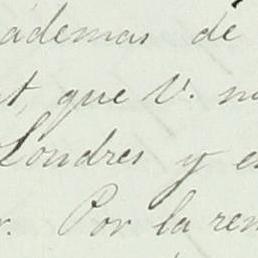 ademas de
que V.
Londres y
Por la